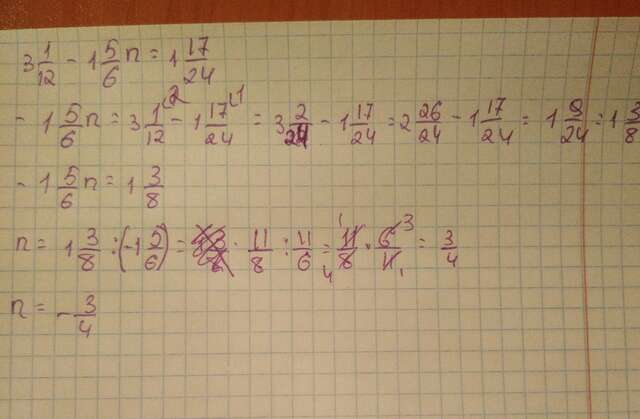 3 1/12 - 1 5/6 n = 1 17/24
- 1 5/6 n = 3 1/12 - 1 17/24 = 3 2/24 - 1 17/24 = 2 26/24 - 1 17/24 = 1 9/24 = 1 3/8
- 1 5/6 n = 1 3/8
n = 1 3/8 : (-1 5/6) = 11/8 : 11/6 = 11/8 * 6/11 = 3/4
n = - 3/4